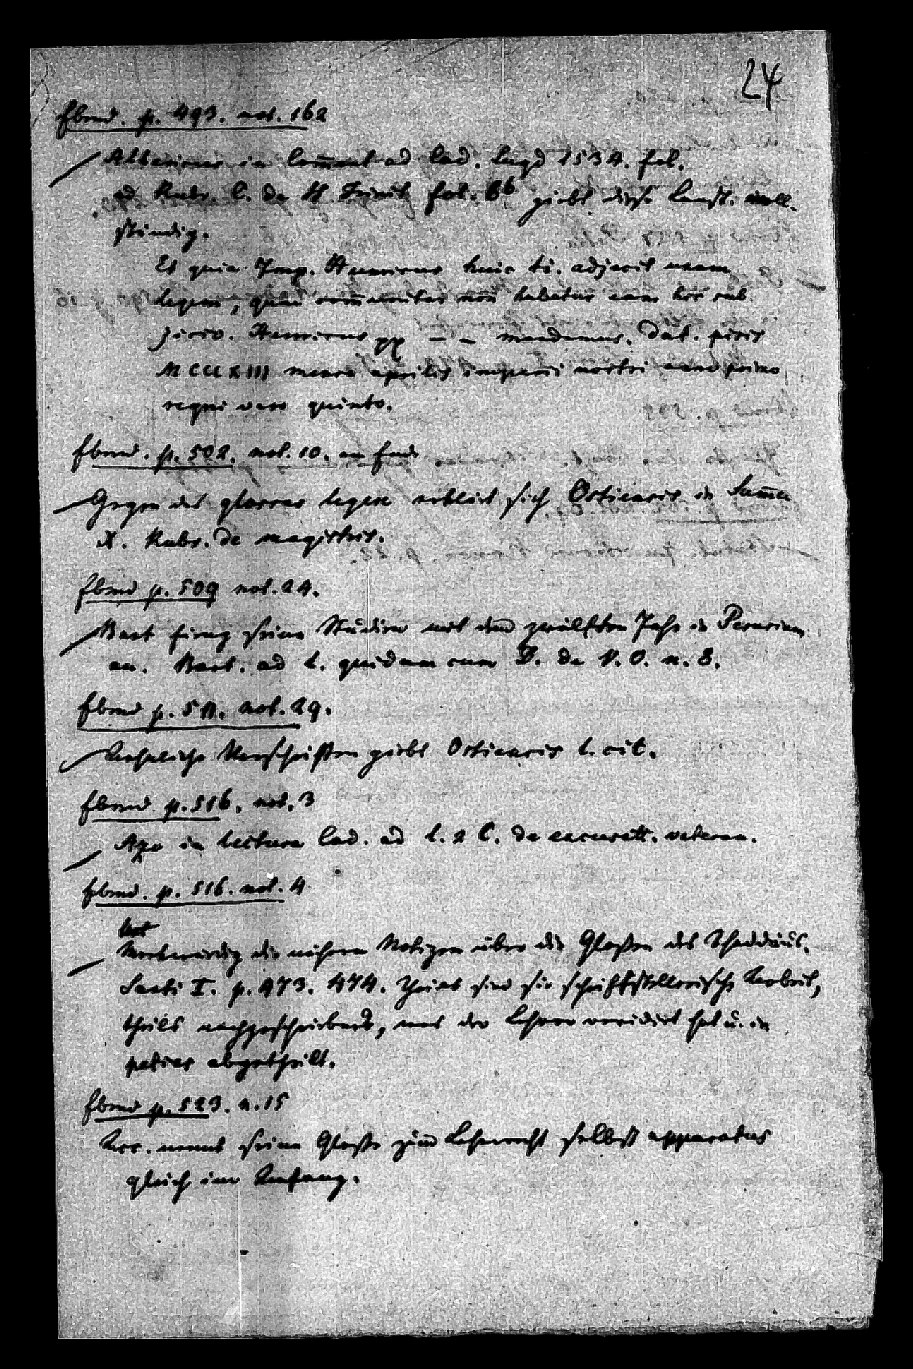 24
Ebend. p. 493. not. 162
in Comment ad Cod. Lugd 1534. fol.
ad Rubr. C. de  Trinit fol. 6b giebt diese Const. voll-
ständig.
Et quia Imp. Henricus huic ti. adjecit unam
legem, quae communiter non habetur
Henricus  – – mandamus. Dat.
mense aprilis imperii nostri anno primo
regni vero quinto.
Ebend. p. 502. not. 10. am Ende
Gegen das glossas legere erklärt sich Ostiensis in Summa
X. Rubr. de magistris.
Ebend p. 509 not. 24.
Bart fieng seine Studien mit dem zwölften Jahr in Perusium
an. Bart. ad L. quidam cum D. de V. O. n. 8.
Ebend p. 511. not. 29.
Aehnliche Vorschriften giebt Ostiensis l. cit.
Ebend p. 516. not. 3
Azo in Lectura Cod. ad l. 2 C. de veteran.
Ebend. p. 516. not. 4
Merkwürdig die nähern Notizen über die Glossen des Thaddäus.
Sarti I. p. 473. 474. Theils sind sie schriftstellerische Arbeit,
theils nachgeschrieben, was der Lehrer revidirt hat u. in
petias abgetheilt.
Ebend p. 523. n. 15
Acc. nennt seine Glosse zum Lehenrecht selbst apparatus
gleich im Anfang.